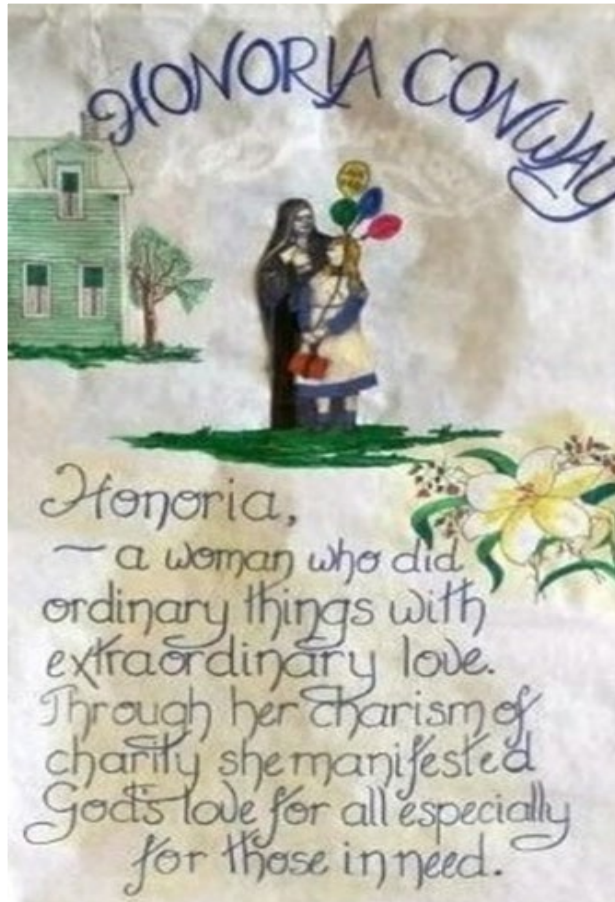 HONORIA CONWAY
Honoria,
~ a woman who did
ordinary things with
extraordinary love.
Through her charism of
charity she manifested
God's love for all especially
for those in need.